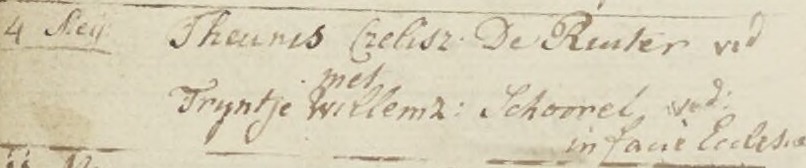 4 Meij: Theunis Crelisz: De Ruiter vid
met
Tryntje Willemz: Schoorel vid:
in facie Ecclesiae